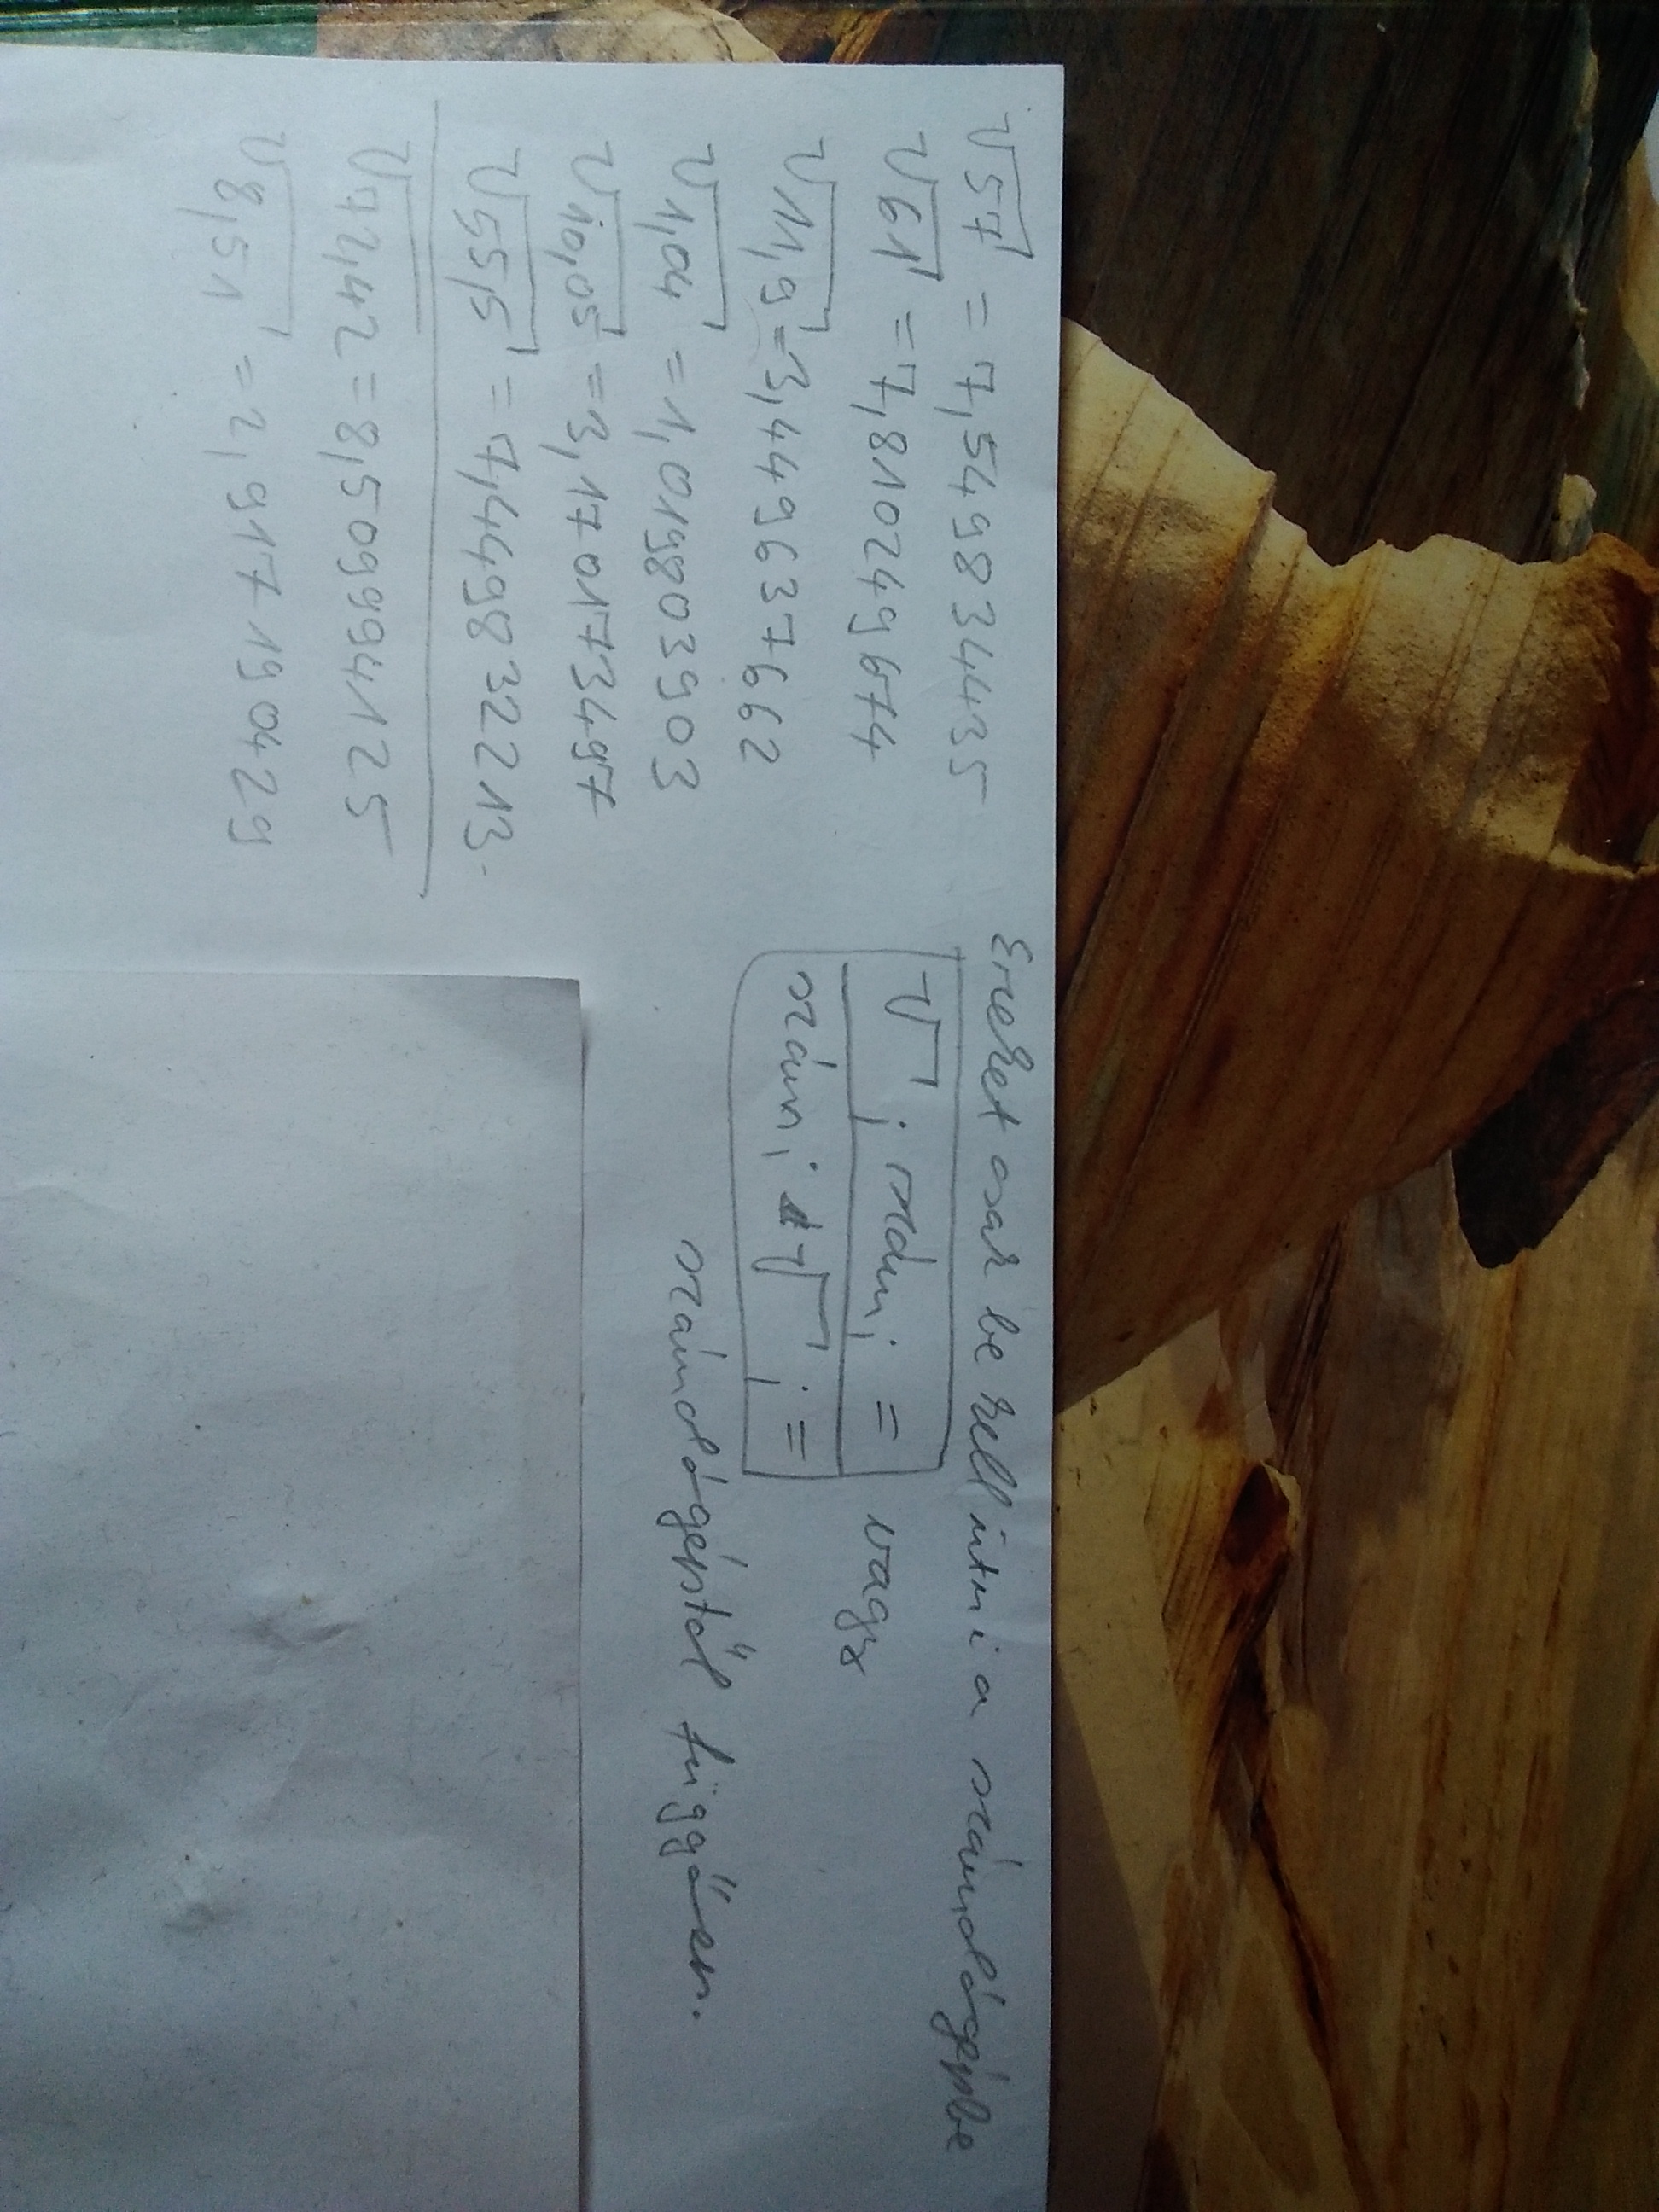 √57 = 7,549834435
√61 = 7,810249674
√11,9 = 3,449637662
√1,04 = 1,019803903
√10,05 = 3,170173497
√55,5 = 7,449832213.
√72,42 = 8,509994125
√8,51 = 2,917190429
Ezeket csak be kell ütni a számológépbe
√ ; szám; = vagy
szám; √ ; =
számológéptől függően.